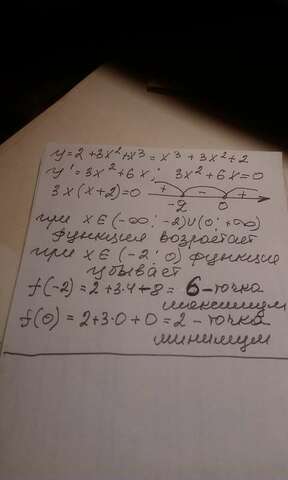 y=2+3x²+x³=x³+3x²+2
y'=3x²+6x; 3x²+6x=0
3x(x+2)=0 + - +
-2 0
при x∈(-∞;-2)∪(0;+∞)
функция возрастает
при x∈(-2;0) функция
убывает
f(-2)=2+3·4-8=6-точка
максимум
f(0)=2+3·0+0=2-точка
минимум